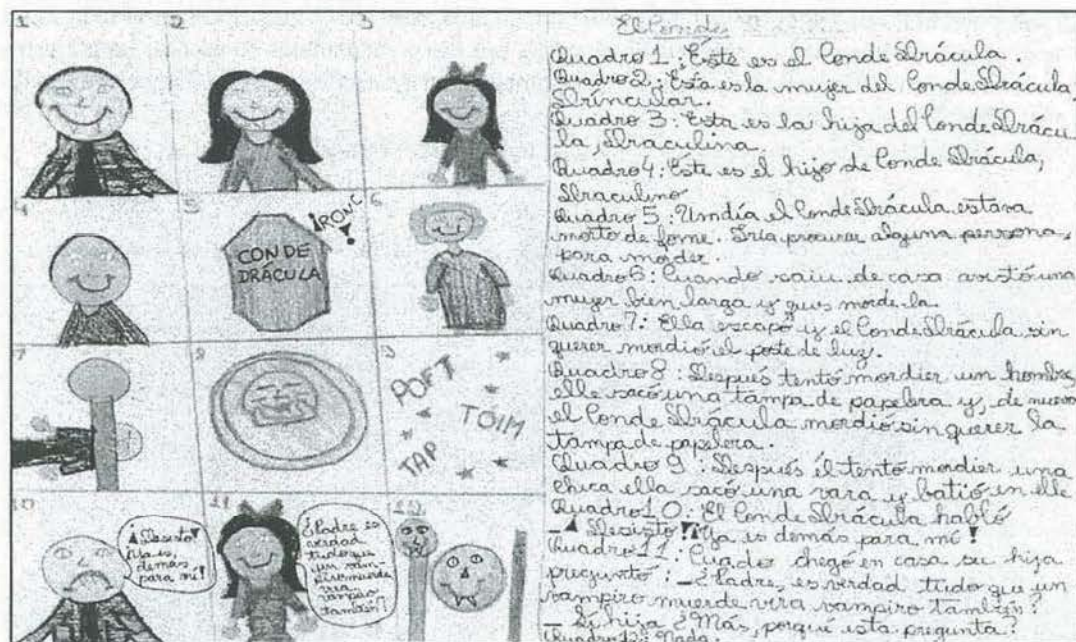 1
2
3
4
5
¡RONC!
CONDE
DRÁCULA
6
7
8
9
POFT
TÓIM
TAP
10
¡Desisto!
Ya es
demás
para mí!
11
¿Padre es
verdad
tudo que
un vam-
piro muerde
vira
vampiro
también?
12
El Conde Drácula
Quadro 1: Este es el Conde Drácula.
Quadro 2: Esta es la mujer del Conde Drácula,
Drincular.
Quadro 3: Esta es la hija del Conde Drácu
la, Draculina.
Quadro 4: Este es el hijo de Conde Drácula,
Draculino
Quadro 5: Un día el Conde Drácula estava
morto de fome. Iría procurar alguna persona,
para morder.
Quadro 6: Cuando saiu de casa avistó una
mujer bien larga y quis morde-la.
Quadro 7: Ella escapó y el Conde Drácula sin
querer mordió el poste de luz.
Quadro 8: Después tentó mordier un hombre,
elle sacó una tampa de papelera y, de nuevo
el Conde Drácula mordió sin querer la
tampa de papelera.
Quadro 9: Después él tentó mordier una
chica ella sacó una vara y batió en elle
Quadro 10: El Conde Drácula habló
_ ¡Desisto! Ya es demás para mí!
Quadro 11: Cuado chegó en casa su hija
preguntó: _ ¿Padre, es verdad tudo que un
vampiro muerde vira vampiro también?
_ Sí hija ¿Más, porqué esta pregunta?
Quadro 12: Nada.